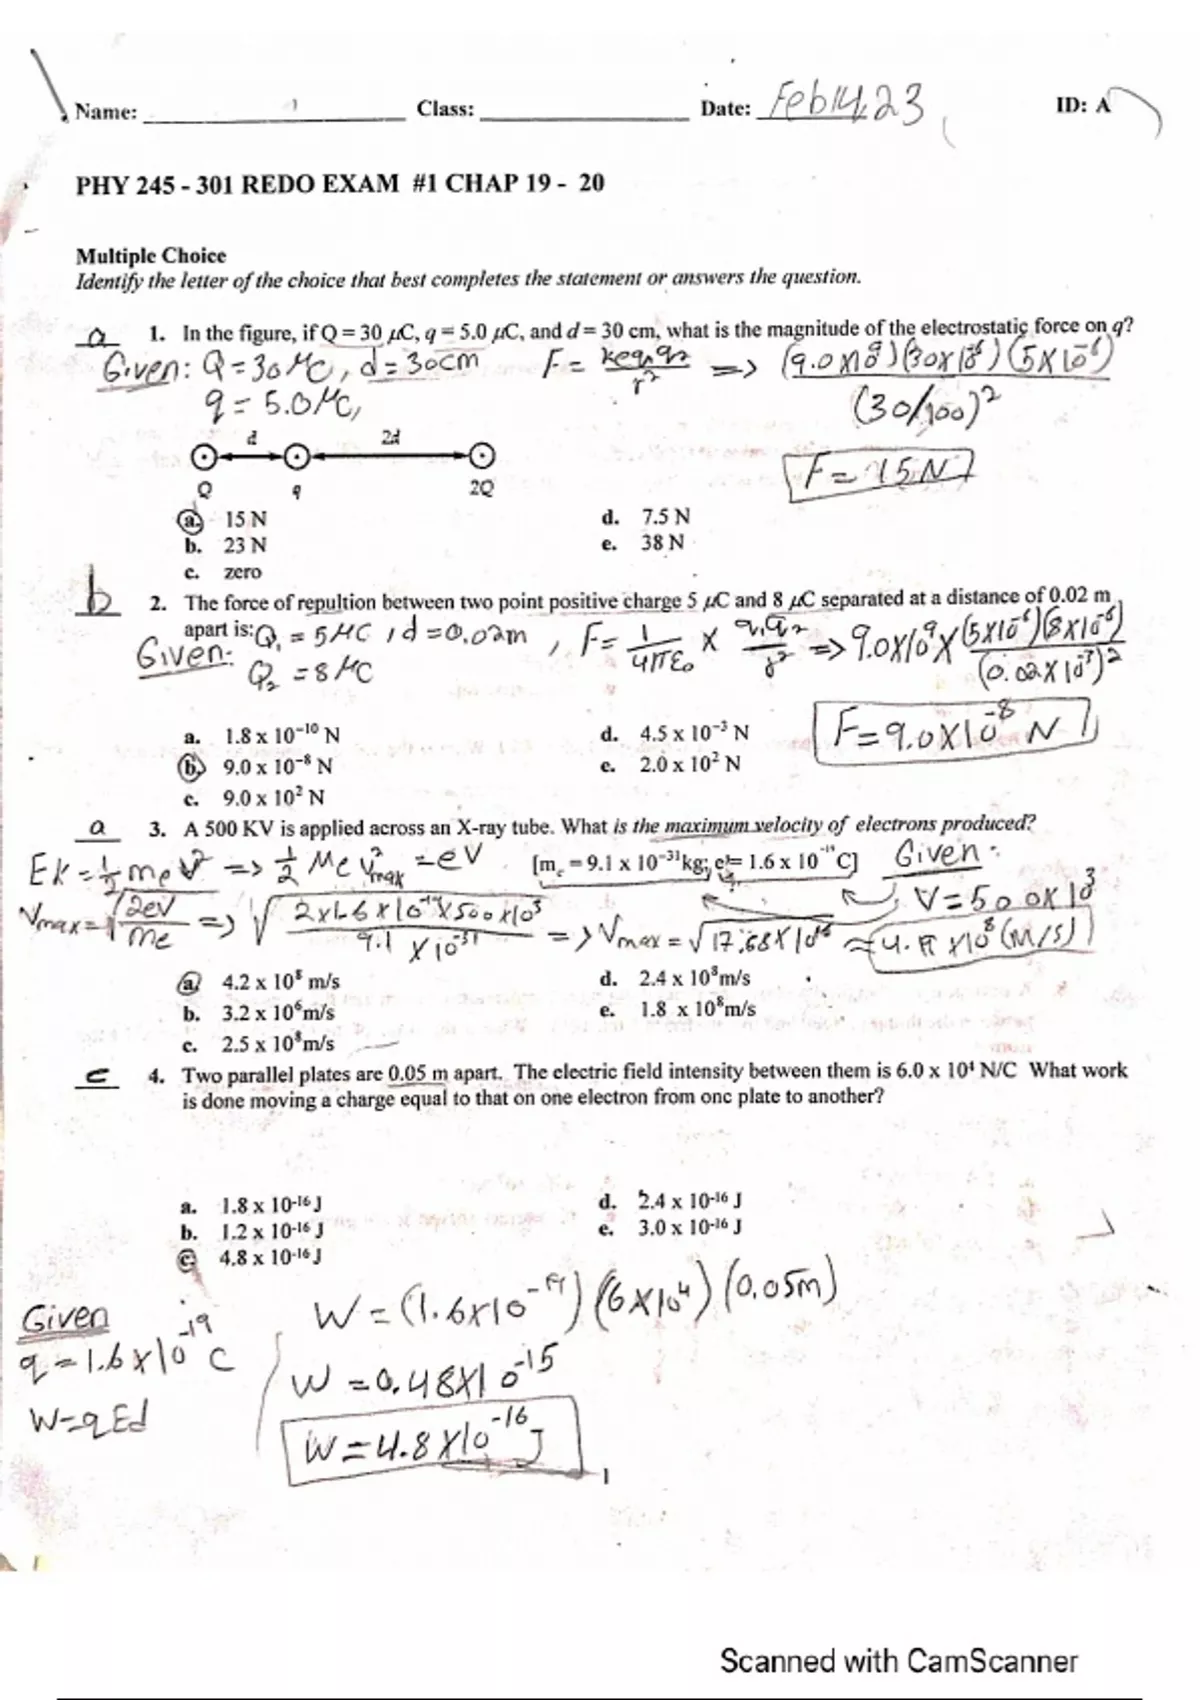 Name: Class: Date: Feb 14, 23 ID: A
PHY 245 - 301 REDO EXAM #1 CHAP 19 - 20
Multiple Choice
Identify the letter of the choice that best completes the statement or answers the question.
a 1. In the figure, if Q = 30 µC, q = 5.0 µC, and d = 30 cm, what is the magnitude of the electrostatic force on q?
Given: Q = 30 µC, d = 30cm F = keq1q2 / r² => (9.0x10⁹)(30x10⁻⁶)(5x10⁻⁶) / (30/100)²
q = 5.0µC,
d 2d
F = 15N
Q q 2Q
a. 15 N d. 7.5 N
b. 23 N e. 38 N
c. zero
b 2. The force of repultion between two point positive charge 5 µC and 8 µC separated at a distance of 0.02 m
apart is: Q1 = 5µC, d = 0.02m, F = 1/4πε₀ x q1q2 / r² => 9.0x10⁹ x (5x10⁻⁶)(8x10⁻⁶) / (0.02x10⁻³)²
Given: Q2 = 8µC
a. 1.8 x 10⁻¹⁰ N d. 4.5 x 10⁻³ N F = 9.0x10⁻⁸ N
b. 9.0 x 10⁻⁸ N e. 2.0 x 10² N
c. 9.0 x 10² N
a 3. A 500 KV is applied across an X-ray tube. What is the maximum velocity of electrons produced?
EK = ½ me V² => ½ Me V²max = eV [mₑ = 9.1 x 10⁻³¹kg; e = 1.6 x 10⁻¹⁹C] Given:
V = 500x10³
Vmax = √2eV/me => √2x1.6x10⁻¹⁹x500x10³ / 9.1x10⁻³¹ => Vmax = √17.58x10¹⁶ ≈ x10⁸ (m/s)
a. 4.2 x 10⁸ m/s d. 2.4 x 10⁸m/s
b. 3.2 x 10⁶m/s e. 1.8 x 10⁸m/s
c. 2.5 x 10⁸m/s
c 4. Two parallel plates are 0.05 m apart. The electric field intensity between them is 6.0 x 10⁴ N/C What work
is done moving a charge equal to that on one electron from one plate to another?
a. 1.8 x 10⁻¹⁶ J d. 2.4 x 10⁻¹⁶ J
b. 1.2 x 10⁻¹⁶ J e. 3.0 x 10⁻¹⁶ J
c. 4.8 x 10⁻¹⁶ J
Given W = (1.6x10⁻¹⁹)(6x10⁴)(0.05m)
q = 1.6x10⁻¹⁹ C W = 0.48x10⁻¹⁵
W=qEd W = 4.8x10⁻¹⁶ J
1
Scanned with CamScanner